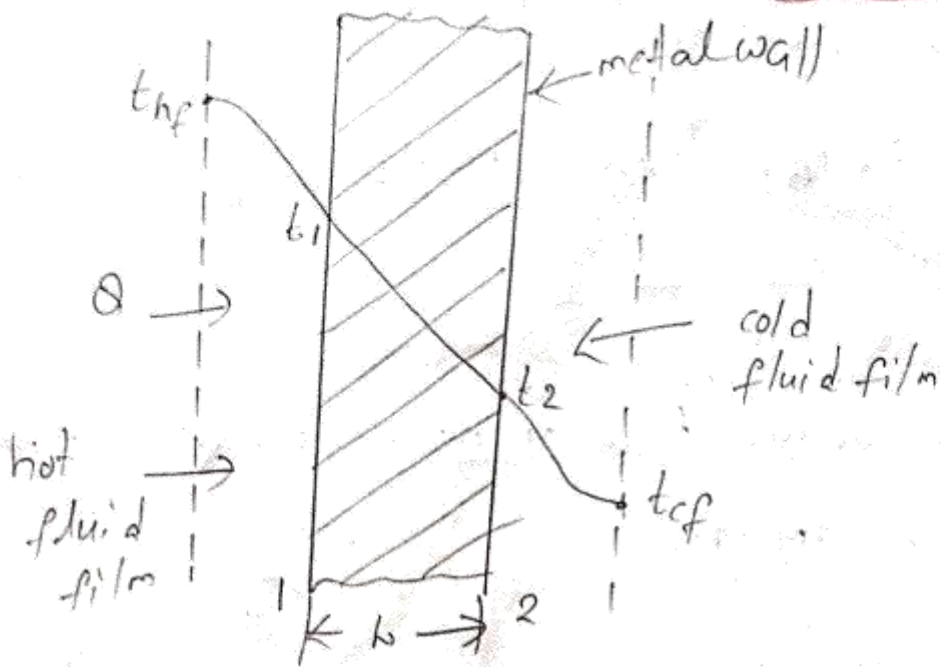 metal wall
t_hf
t_1
Q
cold
fluid film
t_2
hot
fluid
film
t_cf
1
2